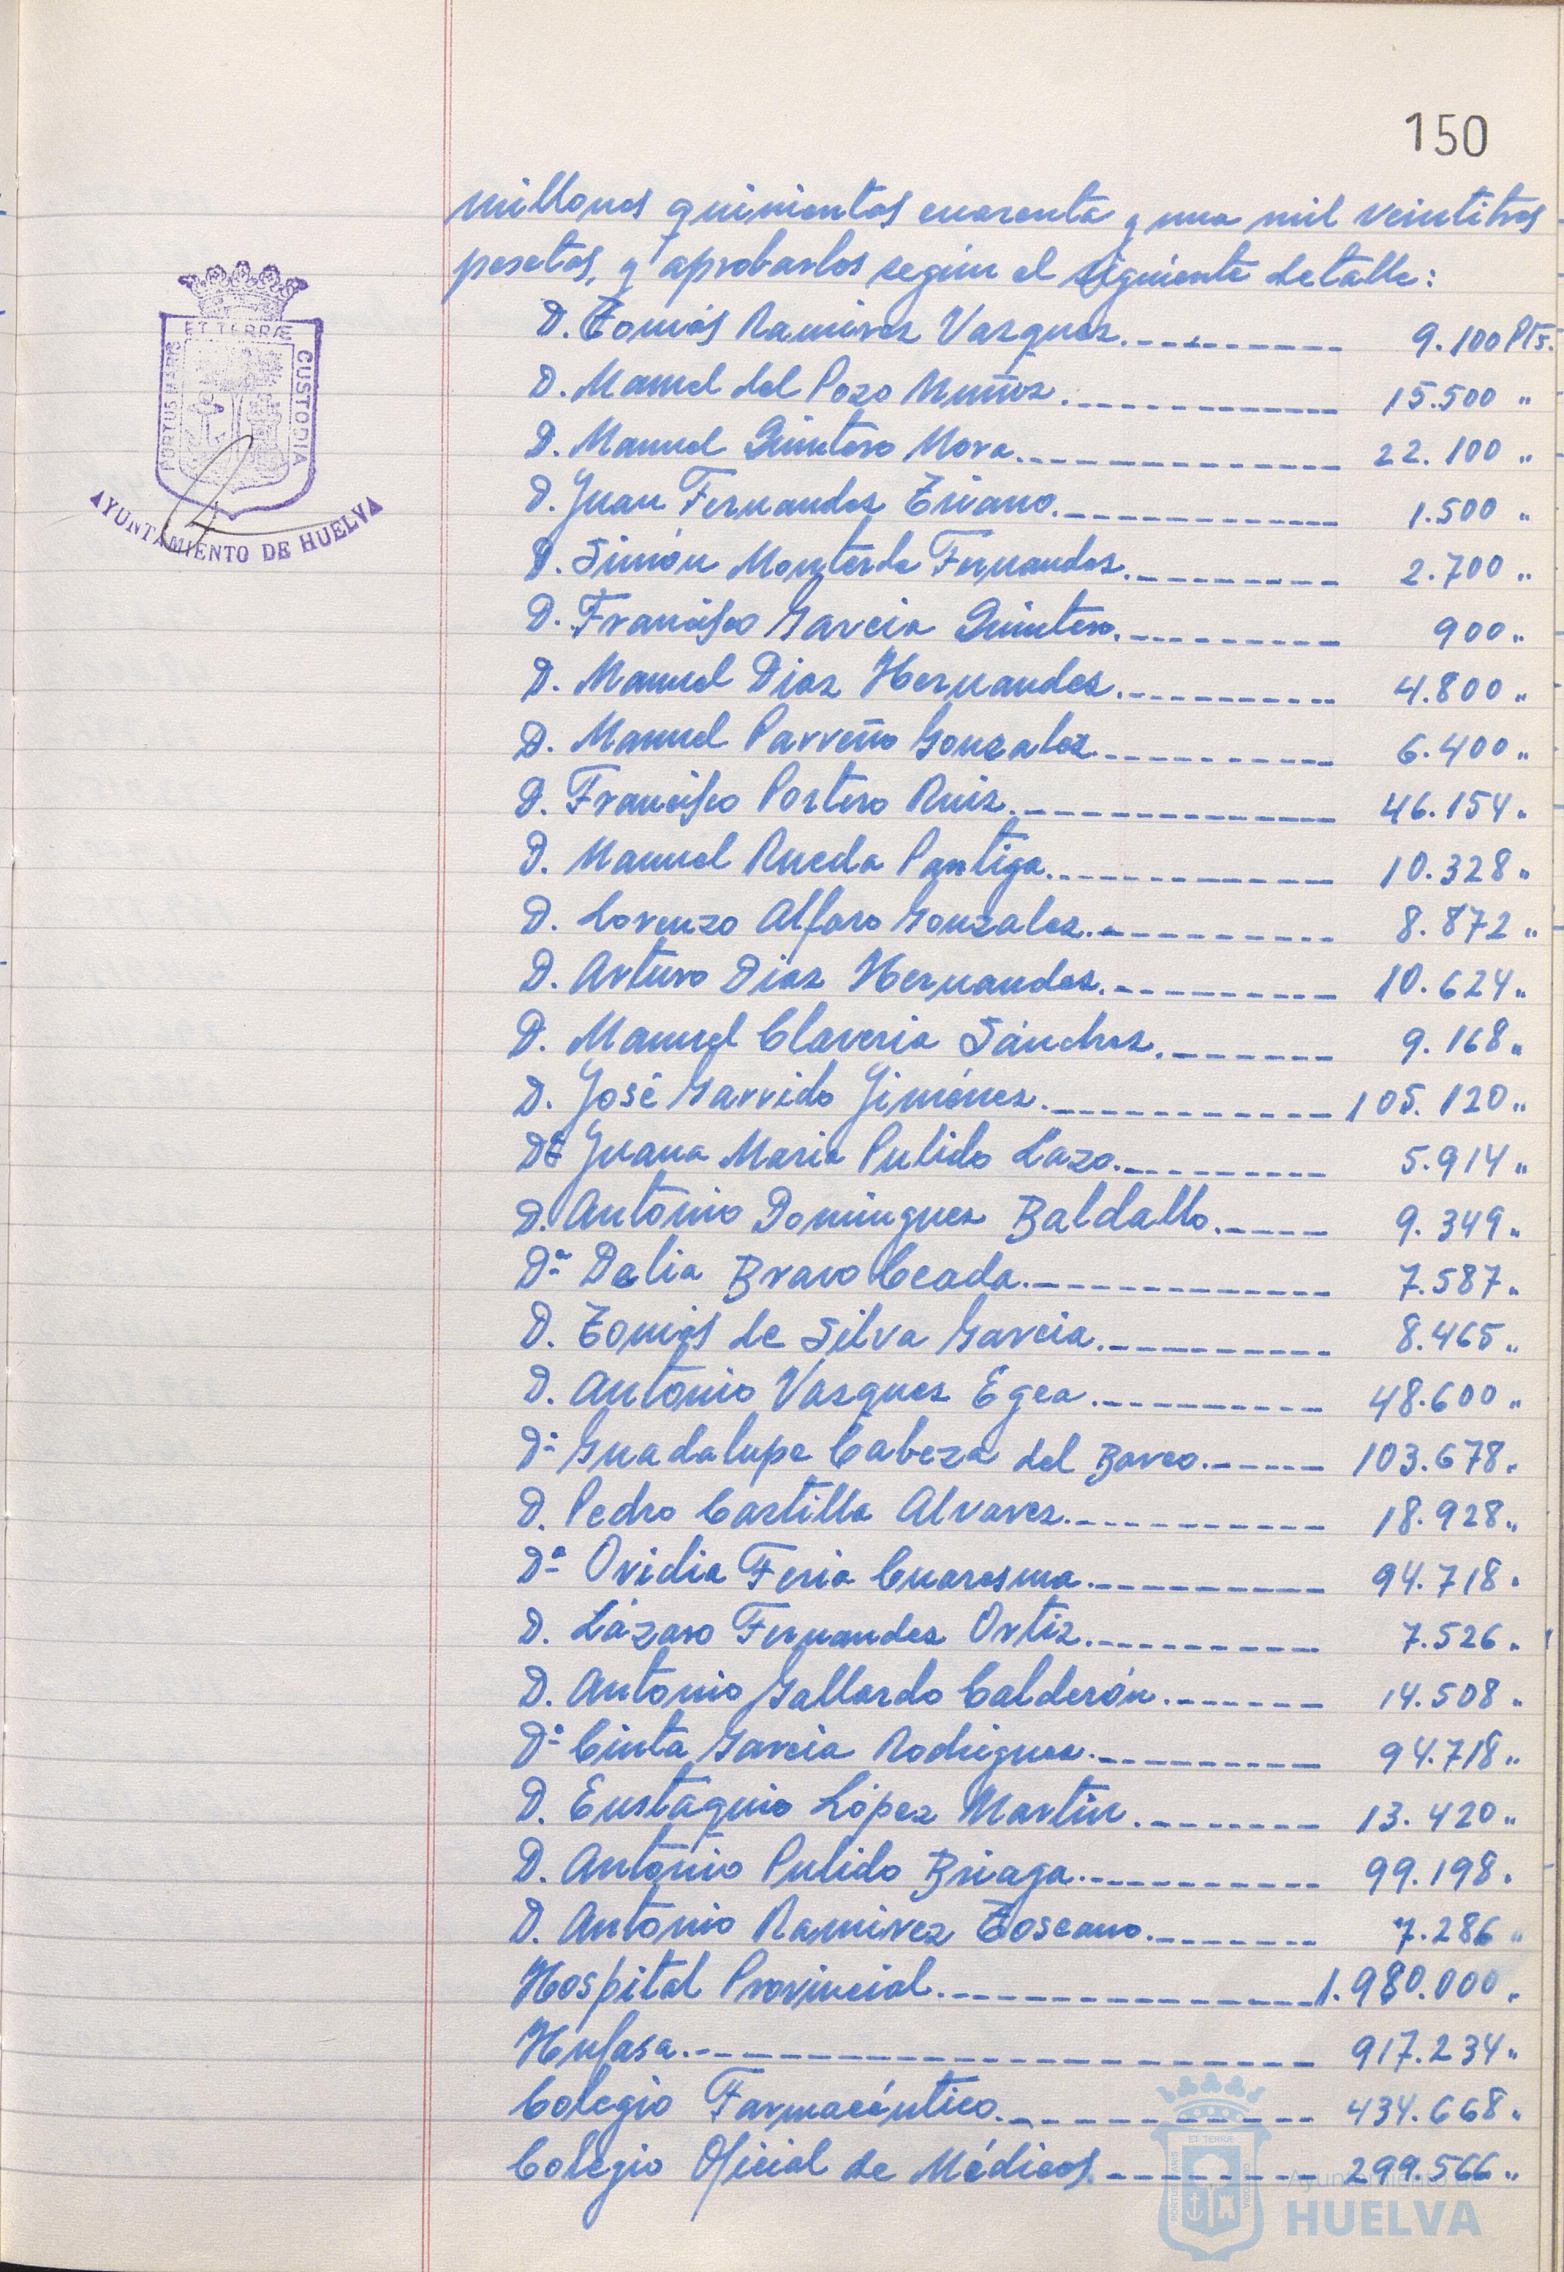 150
millones quinientas cuarenta y una mil veintitres
pesetas, y aprobarlos según el siguiente detalle:
D. Tomás Ramirez Vazquez. 9.100 Pts.
D. Manuel del Pozo Muñoz. 15.500 "
D. Manuel Quintero Mora. 22.100 "
D. Juan Fernandez Triano. 1.500 "
D. Simón Monterde Fernandez. 2.700 "
D. Francisco Garcia Quintero. 900 "
D. Manuel Diaz Hernandez. 4.800 "
D. Manuel Parreño Gonzalez. 6.400 "
D. Francisco Portero Ruiz. 46.154 "
D. Manuel Rueda Pantiga. 10.328 "
D. Lorenzo Alfaro Gonzalez. 8.872 "
D. Arturo Diaz Hernandez. 10.624 "
D. Manuel Claveria Sánchez. 9.168 "
D. José Garrido Jiménez. 105.120 "
Dª Juana Maria Pulido Lazo. 5.914 "
D. Antonio Dominguez Baldallo. 9.349 "
Dª Delia Bravo Ceada. 7.587 "
D. Tomás de Silva Garcia. 8.465 "
D. Antonio Vazquez Egea. 48.600 "
Dª Guadalupe Cabeza del Barco. 103.678 "
D. Pedro Castilla Alvarez. 18.928 "
Dª Ovidia Feria Cuaresma. 94.718 "
D. Lázaro Fernandez Ortiz. 7.526 "
D. Antonio Gallardo Calderón. 14.508 "
Dª Cinta Garcia Rodriguez. 94.718 "
D. Eustaquio López Martin. 13.420 "
D. Antonio Pulido Briaga. 99.198 "
D. Antonio Ramirez Toscano. 7.286 "
Hospital Provincial. 1.980.000 "
Hufasa. 917.234 "
Colegio Farmacéutico. 434.668 "
Colegio Oficial de Médicos. 299.566 "
PORTUS MARIS
ET TERRÆ
CUSTODIA
AYUNTAMIENTO DE HUELVA
Ayuntamiento de
HUELVA